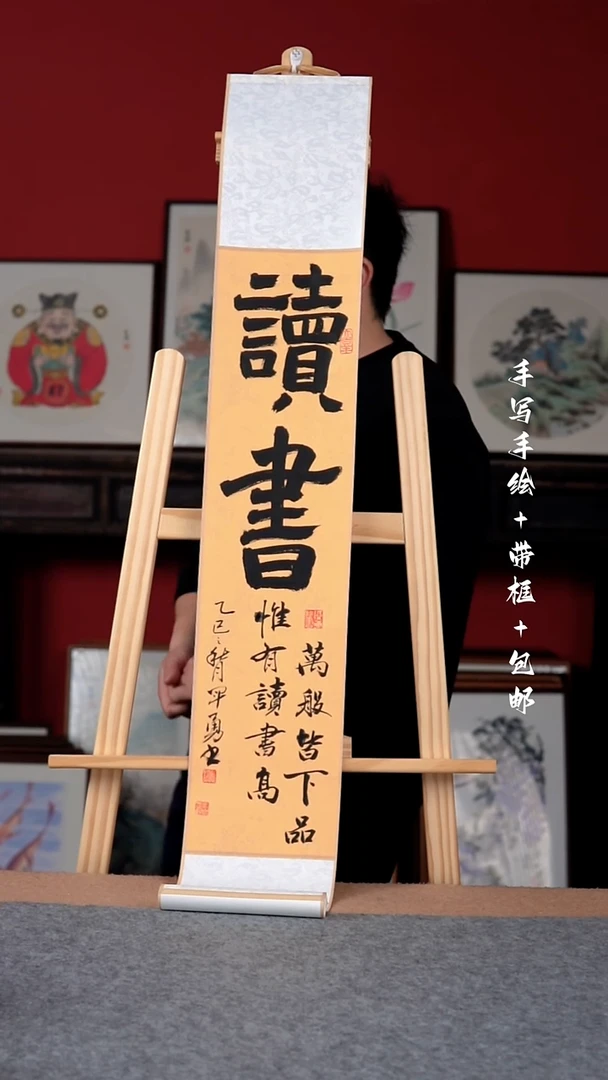 讀書
萬般皆下品
惟有讀書高
手写手绘+带框+包邮